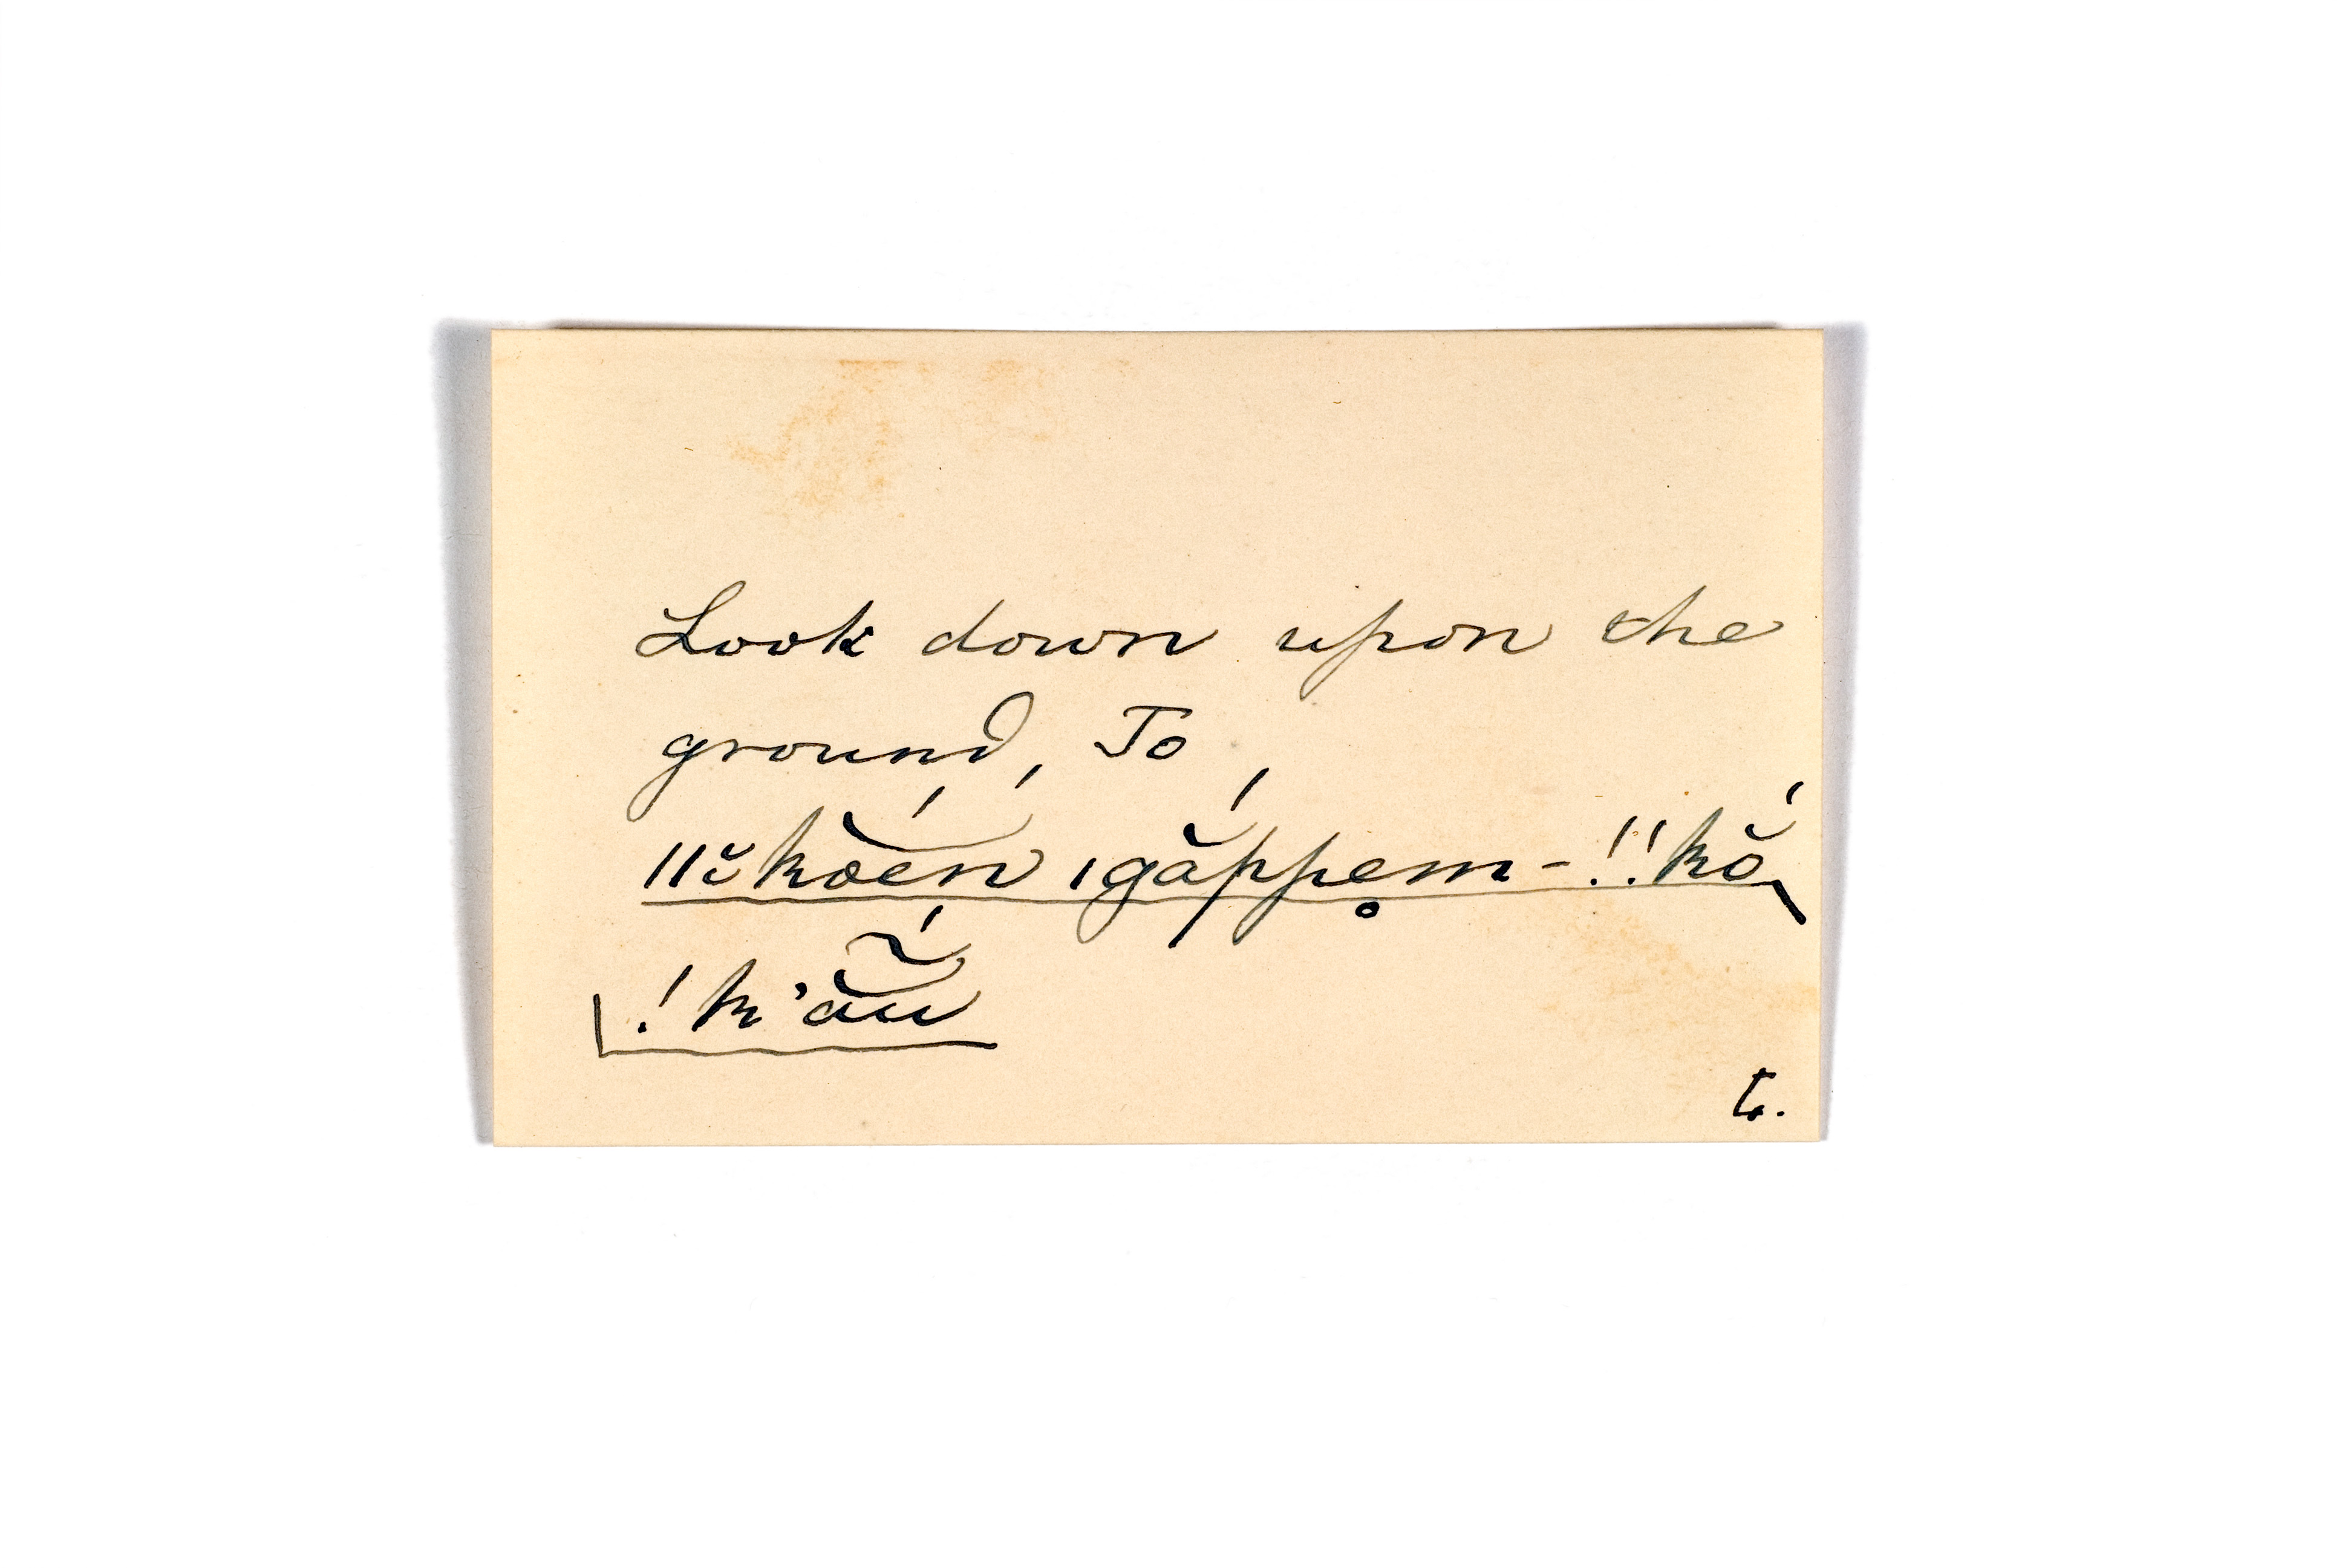 Look down upon the
ground, To
ǁχko̯ĕ́n ǀgắppe̥m-!!kắ
!k’ã̯̆́u
t.